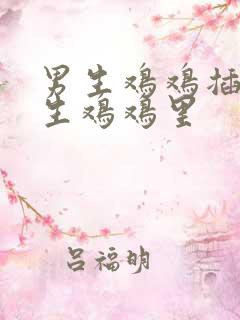 男生鸡鸡插
生鸡鸡里
吕福明